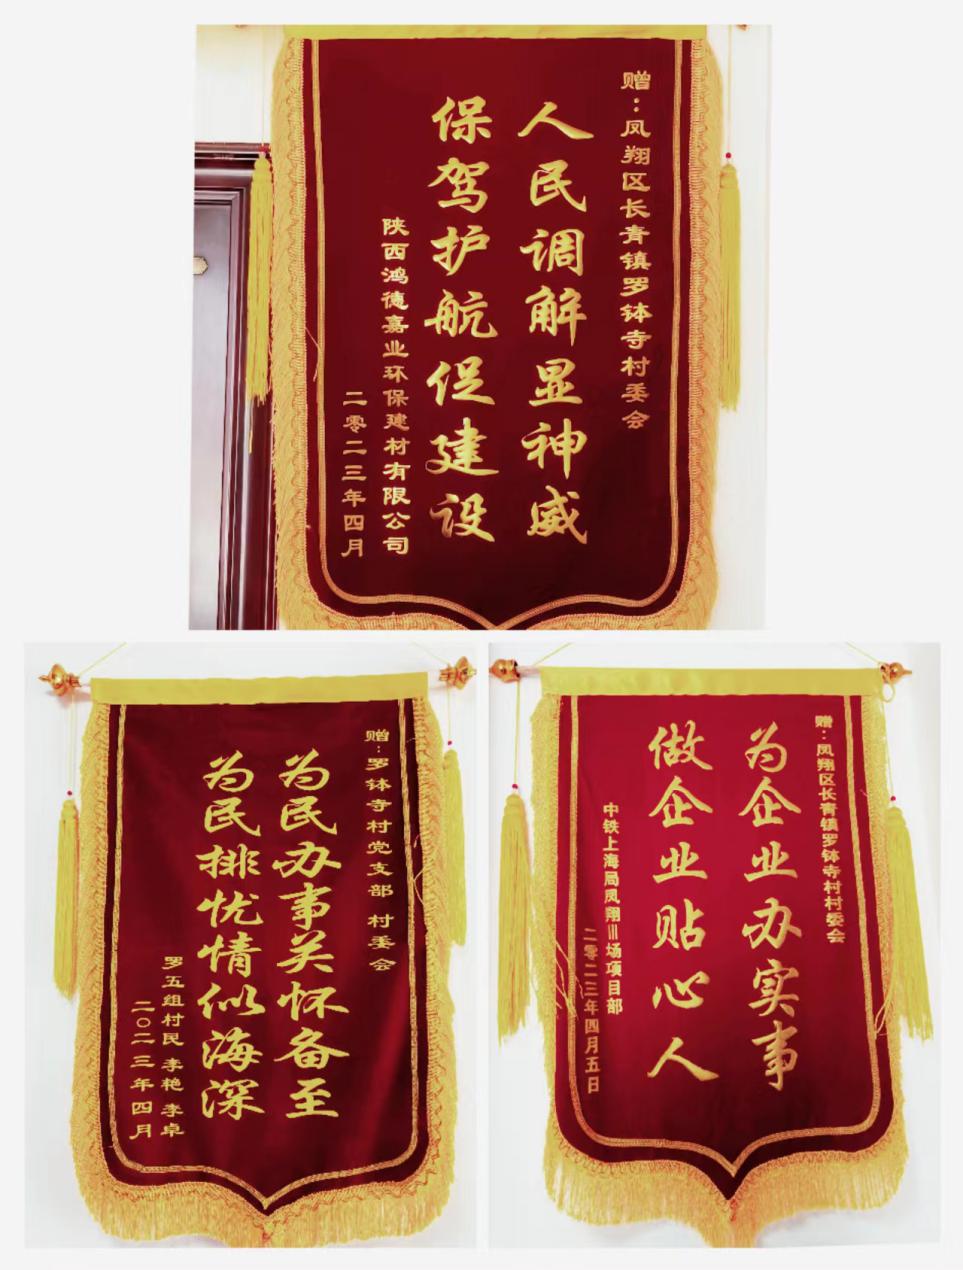 赠：凤翔区长青镇罗钵寺村委会
人民调解显神威
保驾护航促建设
陕西鸿德嘉业环保建材有限公司
二零二三年四月
赠：罗钵寺村党支部 村委会
为民办事关怀备至
为民排忧情似海深
罗五组村民 李艳 李卓
二〇二三年四月
赠：凤翔区长青镇罗钵寺村村委会
为企业办实事
做企业贴心人
中铁上海局凤翔川场项目部
二零二三年四月五日